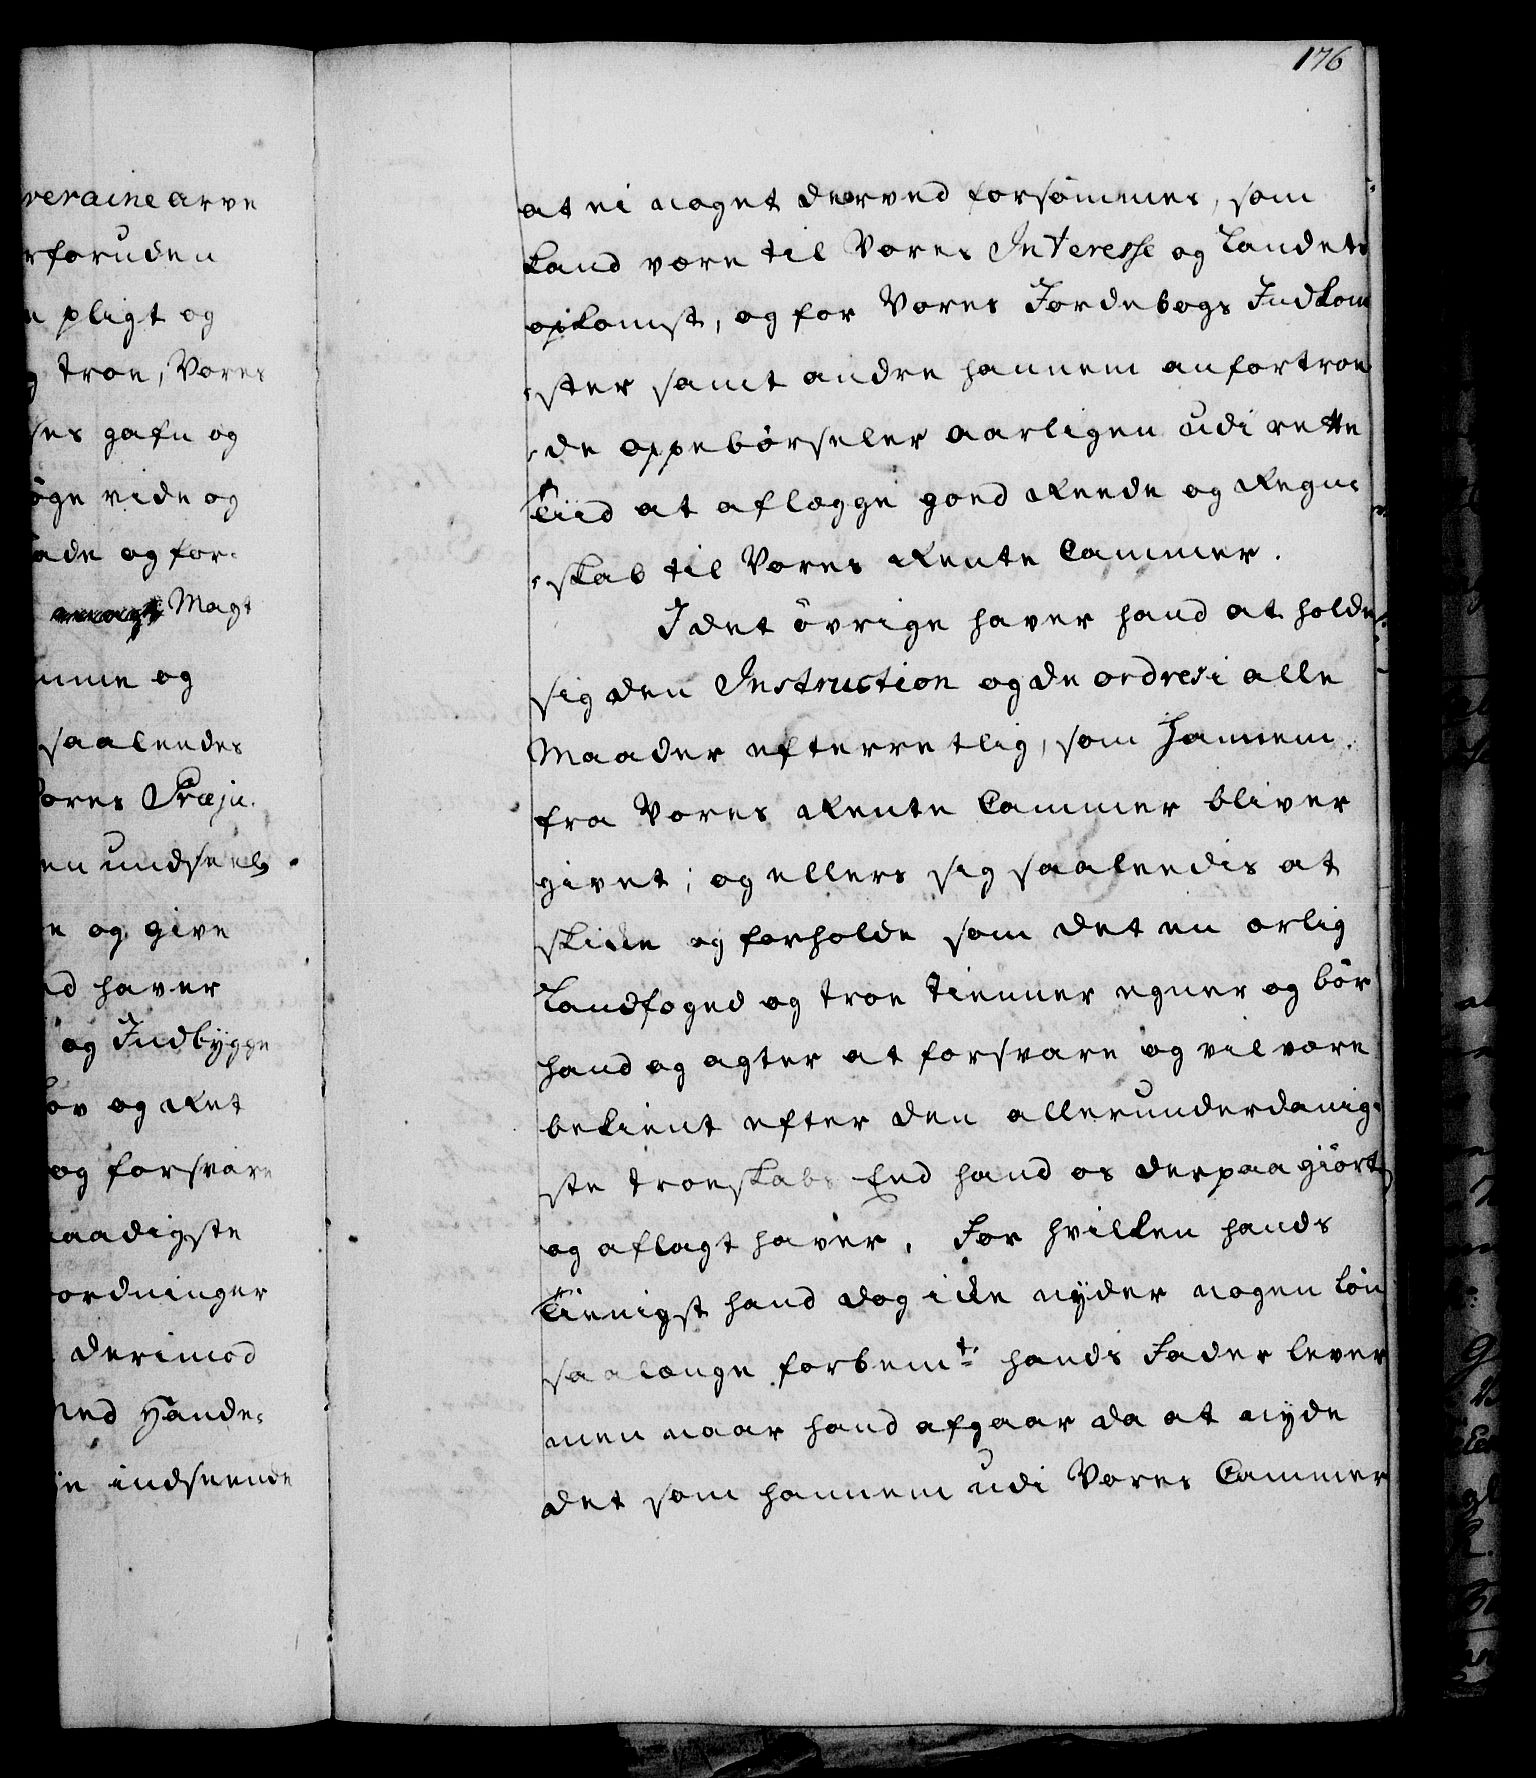 176
veraine arve
rforuden
pligt og
troe, Vores
ses gafn og
øge vide og
ade og for-
Magt
mme og
saaleedes
Vores Præju-
en undseelse
e og give
nd haver
og Indbygge
Lov og Ret
og forsvare
naadigste
ordninger
derimod
med Hænde-
je indseende
at ei noget derved forsømmes, som
kand være til Vores Interesse og Landets
opkomst, og for Vores Jordebogs Indkom
-ster samt andre hannem anfortroe
-de oppebørseler aarligen udi rette
Tiid at aflægge goed Reede og Regn-
-skab til Vores Rente Cammer.
I det øvrige haver hand at holde
sig den Instruction og de ordres i alle
Maader efterretlig, som Hannem
fra Vores Rente Cammer bliver
givet; og ellers sig saaleedis at
skikke og forholde som det en ærlig
Landfoged og troe Tienner egner og bør
hand og agter at forsvare og vil være
bekient efter den allerunderdanig-
ste troeskabs Eed hand os derpaa giort
og aflagt haver. For hvilken hands
Tienigst hand dog ikke nyder nogen Løn
saalænge forbemte hands Fader lever
men naar hand afgaar da at nyde
det som hannem udi Vores Cammer